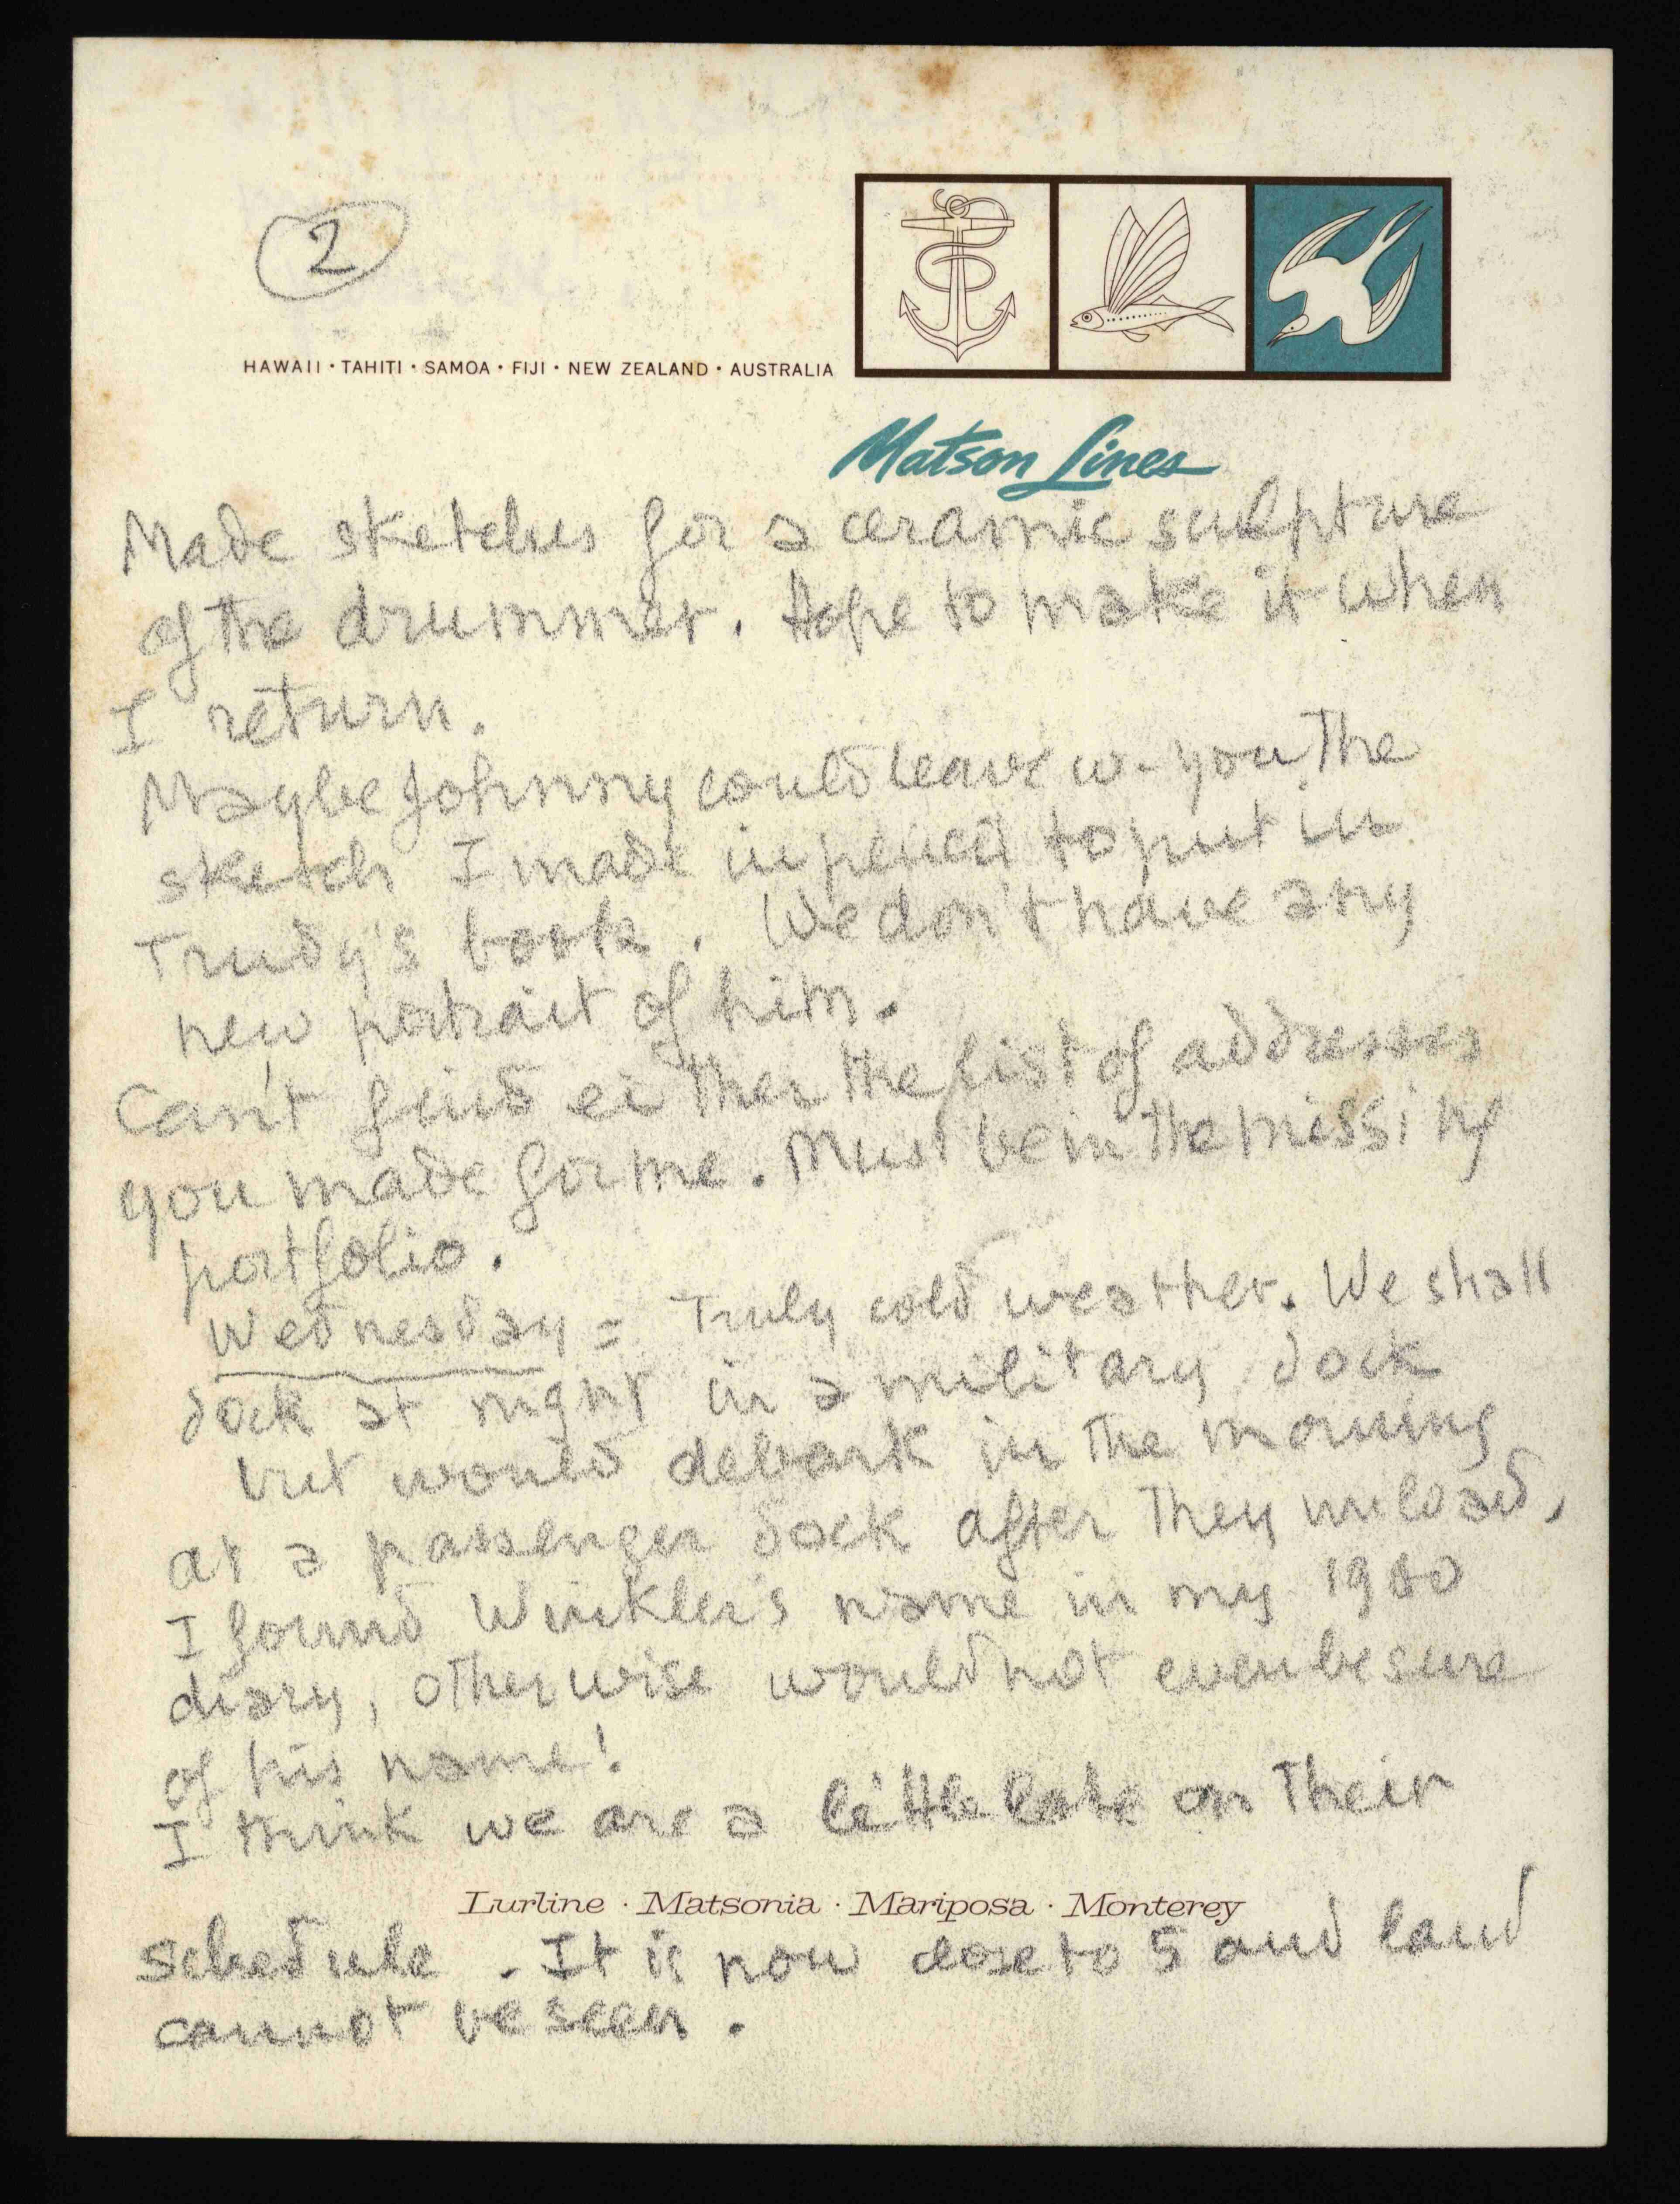 2
HAWAII · TAHITI · SAMOA · FIJI · NEW ZEALAND · AUSTRALIA
Matson Lines
Made sketches for a ceramic sculpture
of the drummer. Hope to make it when
I return.
Maybe Johnny could leave w- you the
sketch I made in pencil to put in
Trudy's book. We don't have any
new portrait of him.
Can't find either the list of addresses
you made for me. Must be in the missing
portfolio.
Wednesday = Truly cold weather. We shall
dock at night in a military dock
but would debark in the morning
at a passenger dock after they unload,
I found Winkler's name in my
diary, otherwise would not even be sure
of his name!
I think we are a little late on their
Lurline · Matsonia · Mariposa · Monterey
schedule. It is now close to 5 and land
cannot be seen.